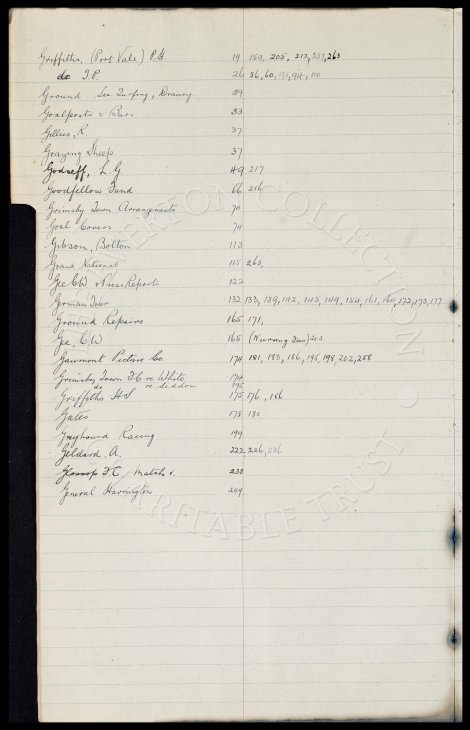 Griffiths. (Port Vale) P.H. 19 159, 205, 212, 237, 263
do T.P. 26 56, 60, 91, 94, 110
Ground See Turfing, Draining. 29
Goalposts & Bars 33
Gillies, R. 37
Grazing Sheep 37
Godseff, L. G. 49 217
Goodfellow Fund 66 216
Grimsby Town Arrangements 70
Goal Covers 74
Gibson, Bolton 113
Grand National 115 263,
Gee CW & Press Reports 122
German Tour 132 133, 139, 142, 145, 149, 154, 161, 164, 172, 173, 177
Ground Repairs 165 171,
Gee, C.W 165 (Nursing) 203
Gaumont Picture Co. 174 181, 183, 186, 195, 198, 202, 258
Grimsby Town F.C re White 174
do re Seddon 195
Griffiths HS 175 176, 186
Gates 178 180
Greyhound Racing 199
Geldard, A. 222 226, 236
Glossop F.C. Match v. 233
General Harrington 249.
EVERTON COLLECTION
CHARITABLE TRUST